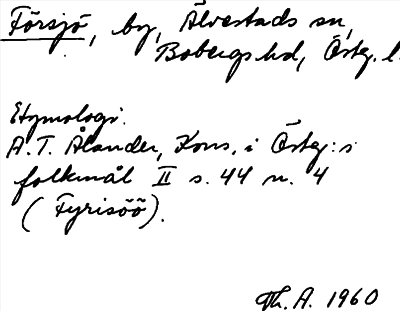 Försjö, by, Älvestads sn,
Bobergs hd, Östg. l.
Etymologi.
A.T. Ålander, Kons. i Östg:s
folkmål II s. 44 n. 4
( Fyrisöö).
Th. A. 1960